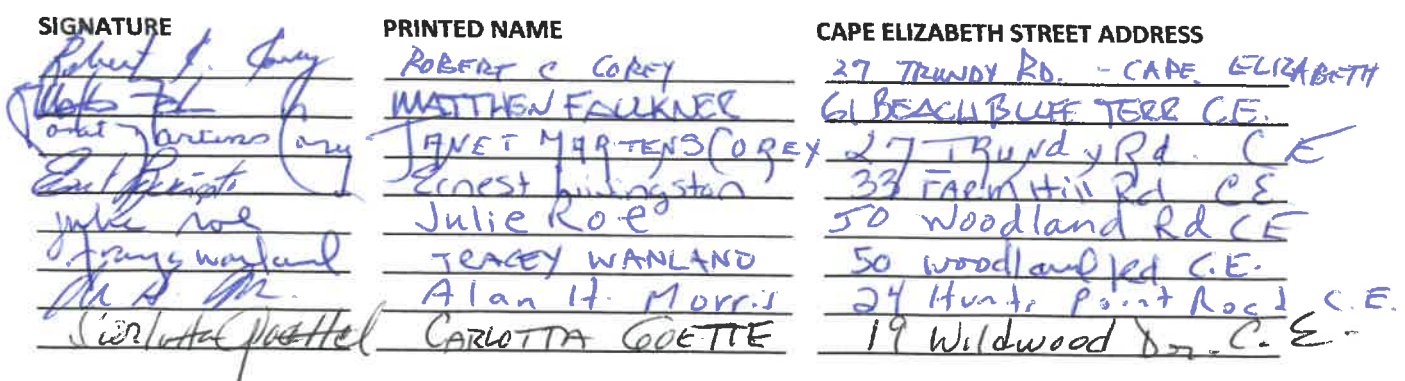 SIGNATURE PRINTED NAME CAPE ELIZABETH STREET ADDRESS
Robert C. Corey ROBERT C COREY 27 TRUNDY RD. - CAPE ELIZABETH
MATTHEW FAULKNER 61 BEACH BLUFF TERR C.E.
Janet Martens Corey JANET MARTENS COREY 27 TRUNdy Rd. C E
Ernest Livingston 33 FARM Hill Rd CE
Julie Roe Julie Roe 50 Woodland Rd CE
Tracey Wanland TRACEY WANLAND 50 Woodland Rd C.E.
Alan H. Morris 24 Hunts Point Road C.E.
Carlotta Goette CARLOTTA GOETTE 19 Wildwood Dr. C.E.